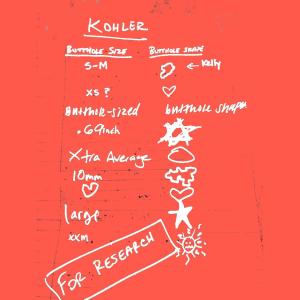 KOHLER
BUTTHOLE SIZE BUTTHOLE SHAPE
S-M ← Kelly
XS?
Butthole-sized butthole shape
.69inch
Xtra Average
10mm
large
xxm
FOR RESEARCH